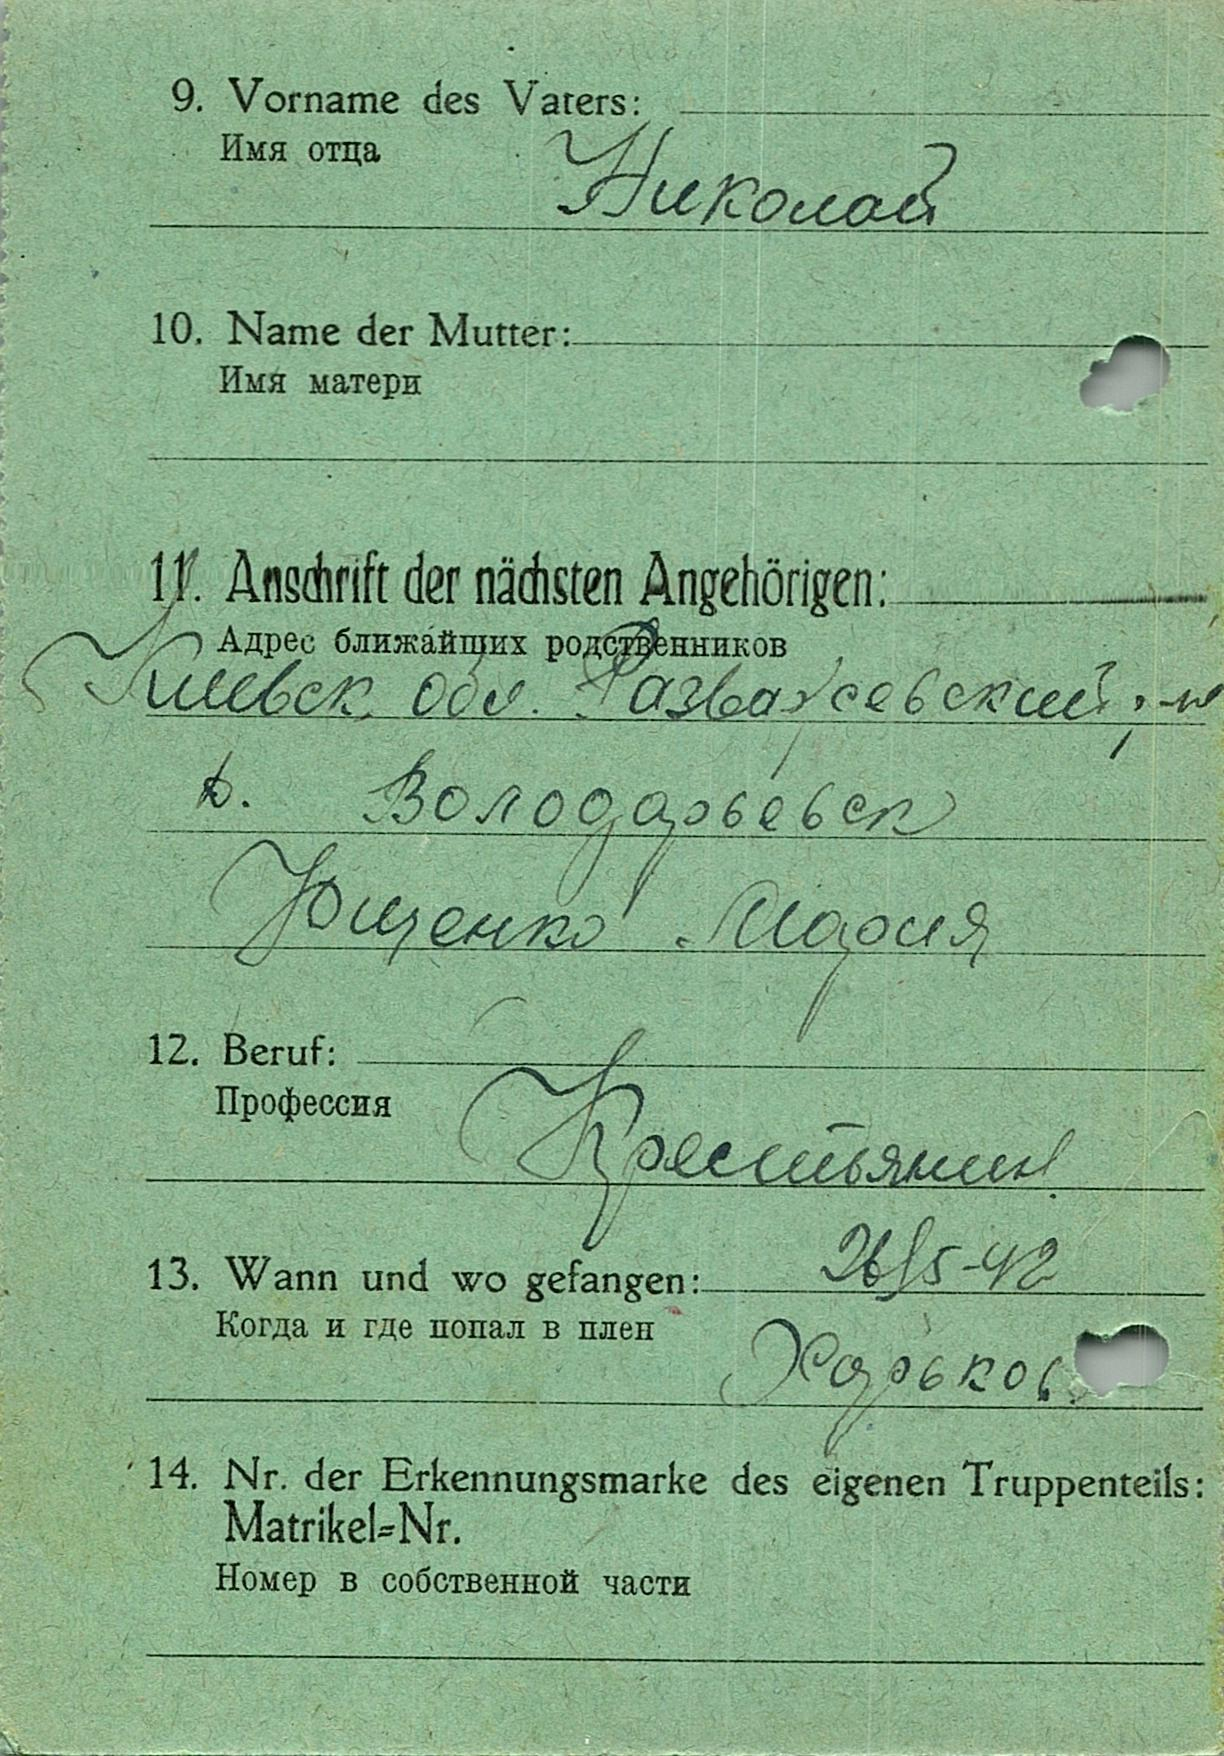 9. Vorname des Vaters:
Имя отца
Николай
10. Name der Mutter:
Имя матери
11. Anschrift der nächsten Angehörigen:
Адрес ближайших родственников
Киевск. обл. Розважевский р-н
д. Володарьевск
Ющенко Мария
12. Beruf:
Профессия
Крестьянин
13. Wann und wo gefangen: 26/5-42
Когда и где попал в плен
Харьков
14. Nr. der Erkennungsmarke des eigenen Truppenteils:
Matrikel=Nr.
Номер в собственной части